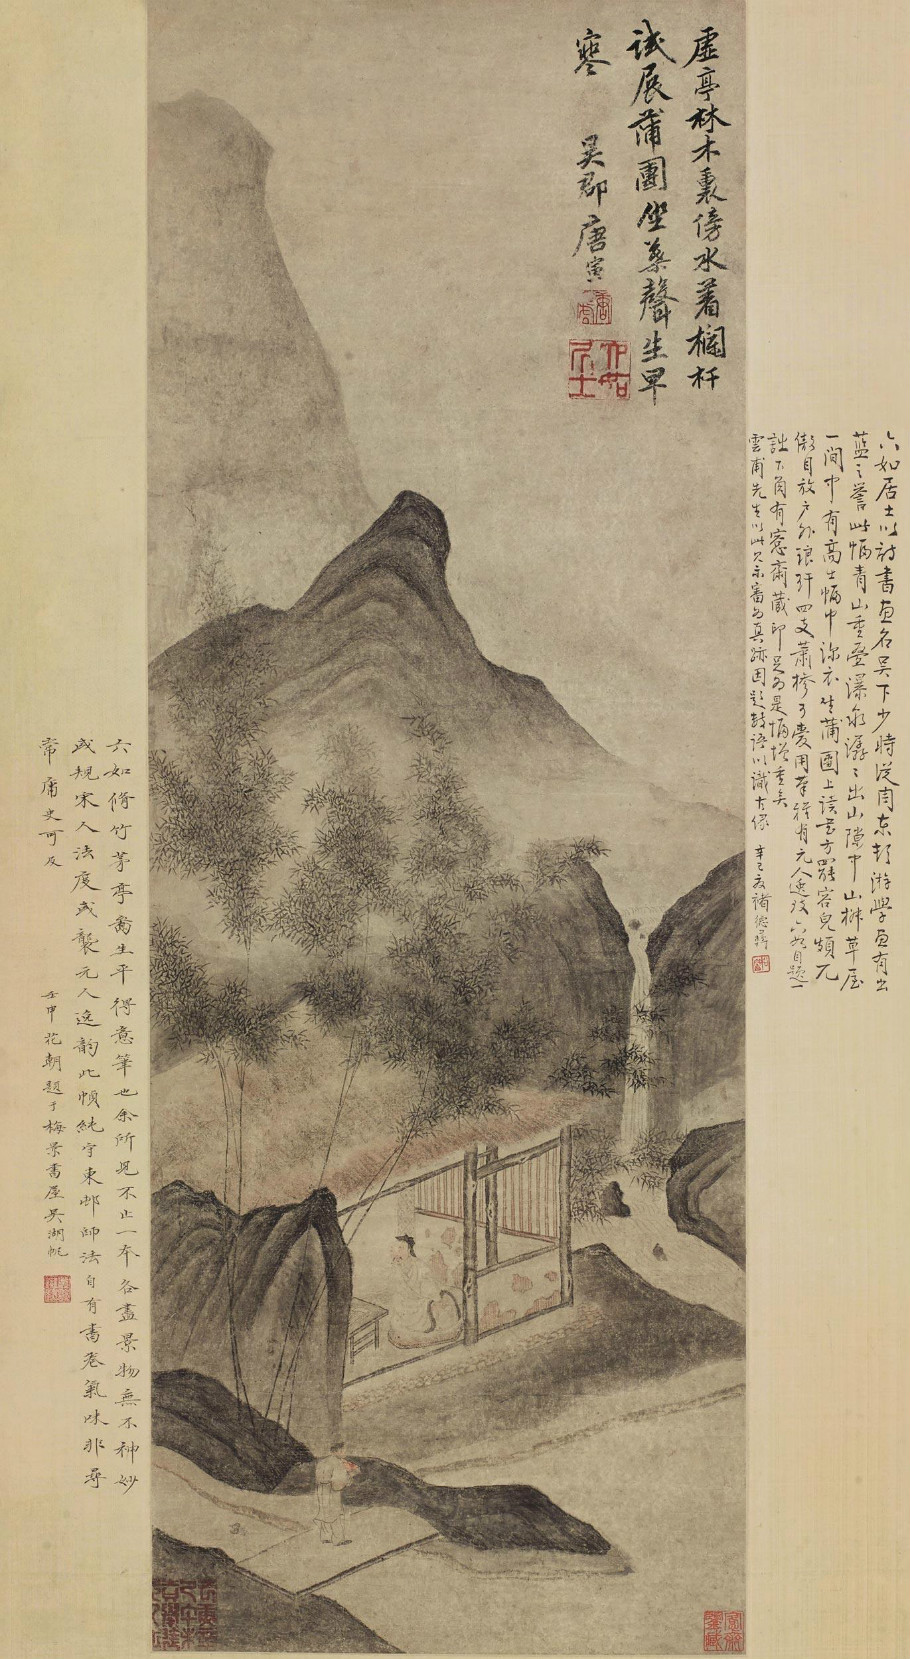 虛亭林木裏傍水着欄杆
試展蒲團坐葉聲生早
寒
吳郡唐寅
唐虎
六如居士
六如居士以詩書畫名吳下少時從周東邨游學畫有出
藍之譽此幀青山重疊瀑泉潺潺出山隙中山榭草屋
一間中有高士幅巾深衣坐蒲團上
傲自放戶外琅玕四支蕭槮可愛用筆雅有元人逸致六如自題一
詩下角有愙齋藏印足為是幀增重矣
雲甫先生以此見示審為真跡因題數語以識古緣
辛巳
褚德彝
六如脩竹茅亭為生平得意筆也余所見不止一本各盡景物無不神妙
或規宋人法度或襲元人逸韵此幀純守東邨師法自有書卷氣味非尋
常庸史可及
壬申花朝題于梅景書屋吳湖帆
愙齋鑒藏